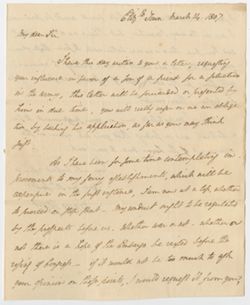 Eliz: Town March 14. 1807.
My dear Sir,
I have this day written to you a letter, requesting
your influence in favor of a friend for a situation
in the army, this letter will be presented or
time in due time. you will really confer on me an obligation
by backing his application, as far as you may think
just.
As I have been for some time contemplating im-
provements to my ferry establishments, which will be
expensive on the just estimate, I am now at a loss whether
to proceed or stop short. My conduct ought to be regulated
by the prospects before us. Whether war or not. Whether or
not there is a hope of the Embargo be raised before the
rising of Congress. if it would not be too much to ask
your opinion on these points, I would request it from you